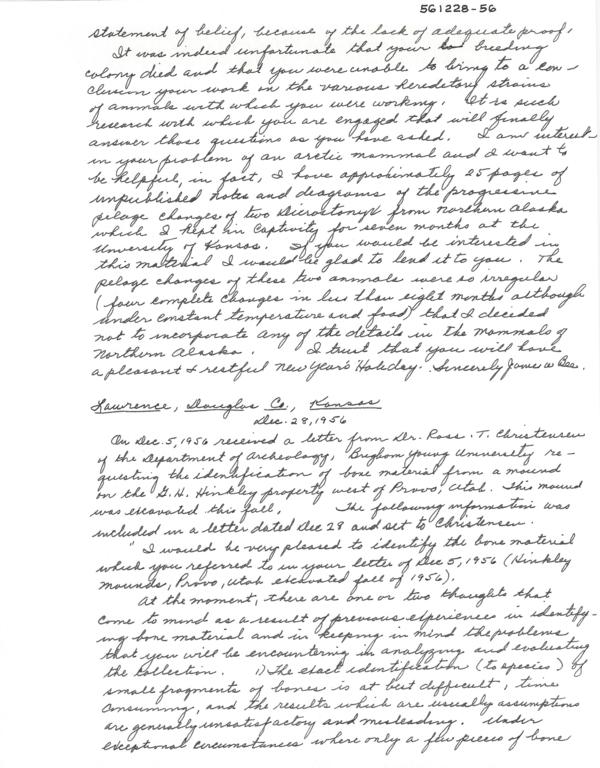 561228-56
statement of belief, because of the lack of adequate proof.
It was indeed unfortunate that your breeding
colony died and that you were unable to bring to a con-
clusion your work in the various hereditary strains
of animals with which you were working. It is such
research with which you are engaged that will finally
answer those questions as you have asked. I am interest-
in your problem of an arctic mammal and I want to
be helpful, in fact, I have approximately 25 pages of
unpublished notes and diagrams of the progressive
pelage changes of two Dicrostonyx from northern Alaska
which I kept in captivity for seven months at the
University of Kansas. If you would be interested in
this material I would be glad to lend it to you. The
pelage changes of these two animals were so irregular
(four complete changes in less than eight months although
under constant temperature and food) that I decided
not to incorporate any of the details in the Mammals of
Northern Alaska. I trust that you will have
a pleasant & restful New Year's Holiday. Sincerely James W Bee.
Lawrence, Douglas Co., Kansas
Dec. 28, 1956
On Dec. 5, 1956 received a letter from Dr. Ross. T. Christensen
of the Department of Archeology, Brigham Young University re-
questing the identification of bone material from a mound
on the G. H. Hinkley property west of Provo, Utah. This mound
was excavated this fall. The following information was
included in a letter dated Dec 28 and set to Christensen.
" I would be very pleased to identify the bone material
which you referred to in your letter of Dec 5, 1956 (Hinkley
mounds, Provo, Utah excavated fall of 1956).
At the moment, there are one or two thoughts that
come to mind as a result of previous experience in identify-
ing bone material and in keeping in mind the problems
that you will be encountering in analyzing and evaluating
the collection. 1) The exact identification (to species) of
small fragments of bones is at best difficult, time
consuming, and the results which are usually assumptions
are generally unsatisfactory and misleading. Under
exceptional circumstances where only a few pieces of bone